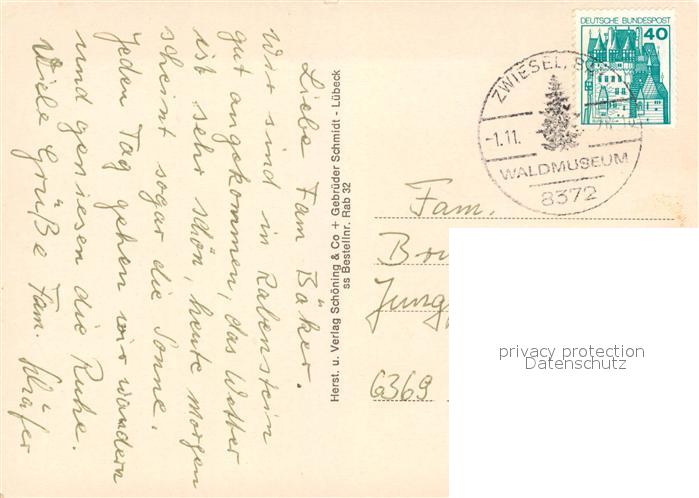 Liebe Fam Bäker.
Wir sind in Rabenstein
gut angekommen, das Wetter
ist sehr schön, heute Morgen
scheint sogar die Sonne.
Jeden Tag gehen wir wandern
und geniesen die Ruhe.
Viele Grüße Fam. Schäfer
Herst. u. Verlag Schöning & Co + Gebrüder Schmidt - Lübeck
ss Bestellnr. Rab 32
DEUTSCHE BUNDESPOST
40
ZWIESEL,
-1.11.
WALDMUSEUM
8372
Fam.
Jung
6369
privacy protection
Datenschutz